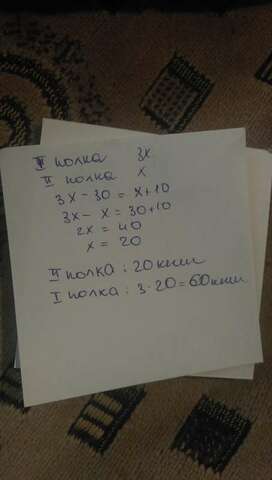 I полка 3x
II полка x
3x - 30 = x + 10
3x - x = 30 + 10
2x = 40
x = 20
II полка : 20 книг
I полка : 3 · 20 = 60 книг